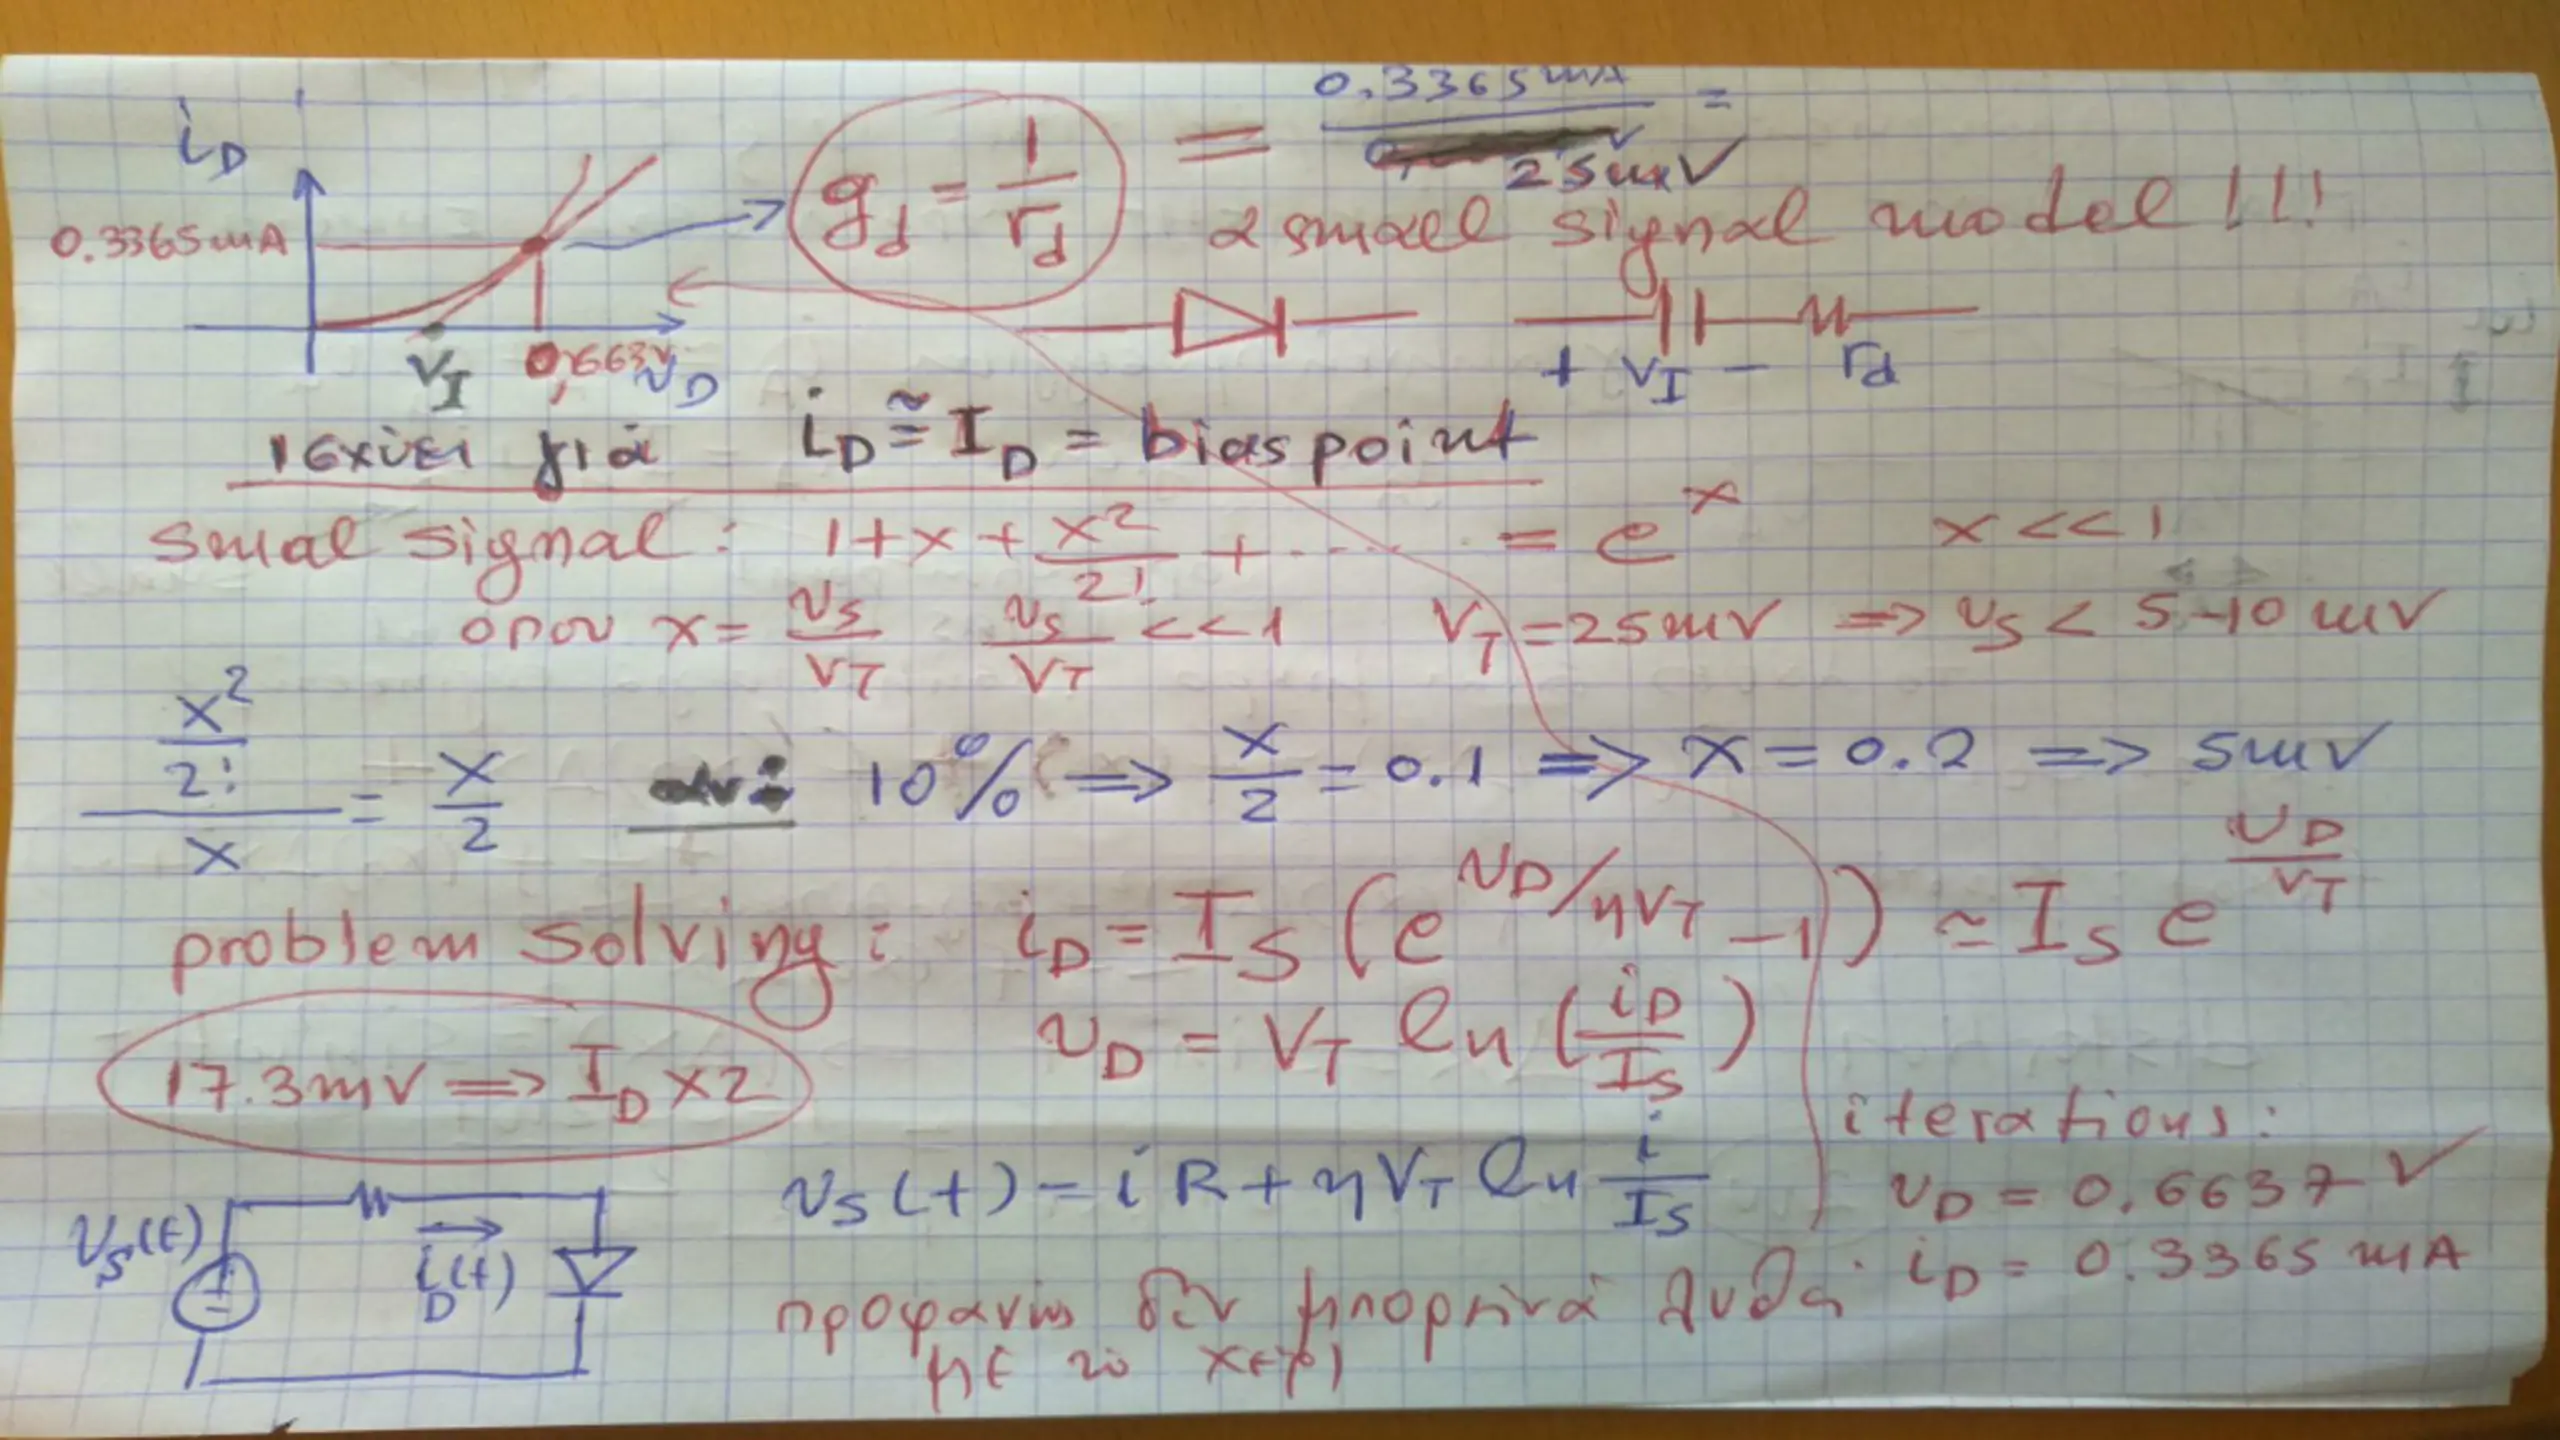 i_D
0.3365mA
g_d = 1/r_d = 0.3365mA / 25mV =
2 small signal model !!!
V_I 0,663V v_D
+ V_I − r_d
ισχύει γιά i_D ≅ I_D = bias point
smal signal: 1+x+x²/2!+...... = e^x x<<1
οπου x= v_S/V_T v_S/V_T <<1 V_T=25mV => v_S < 5-10mV
(x²/2!)/x = x/2 αν: 10% => x/2=0.1 => x=0.2 => 5mV
problem solving: i_D = I_S (e^(v_D/ηV_T) −1) ≃ I_S e^(v_D/V_T)
v_D = V_T ln(i_D/I_S)
17.3mV => I_D x2
iterations:
v_S(t) = iR+ηV_T ln i/I_S
v_D = 0.6637 V
i_D = 0.3365 mA
v_S(t)
+
−
i_D(t)
προφανώς δεν μπορεί νά λυθεί
με το χέρι